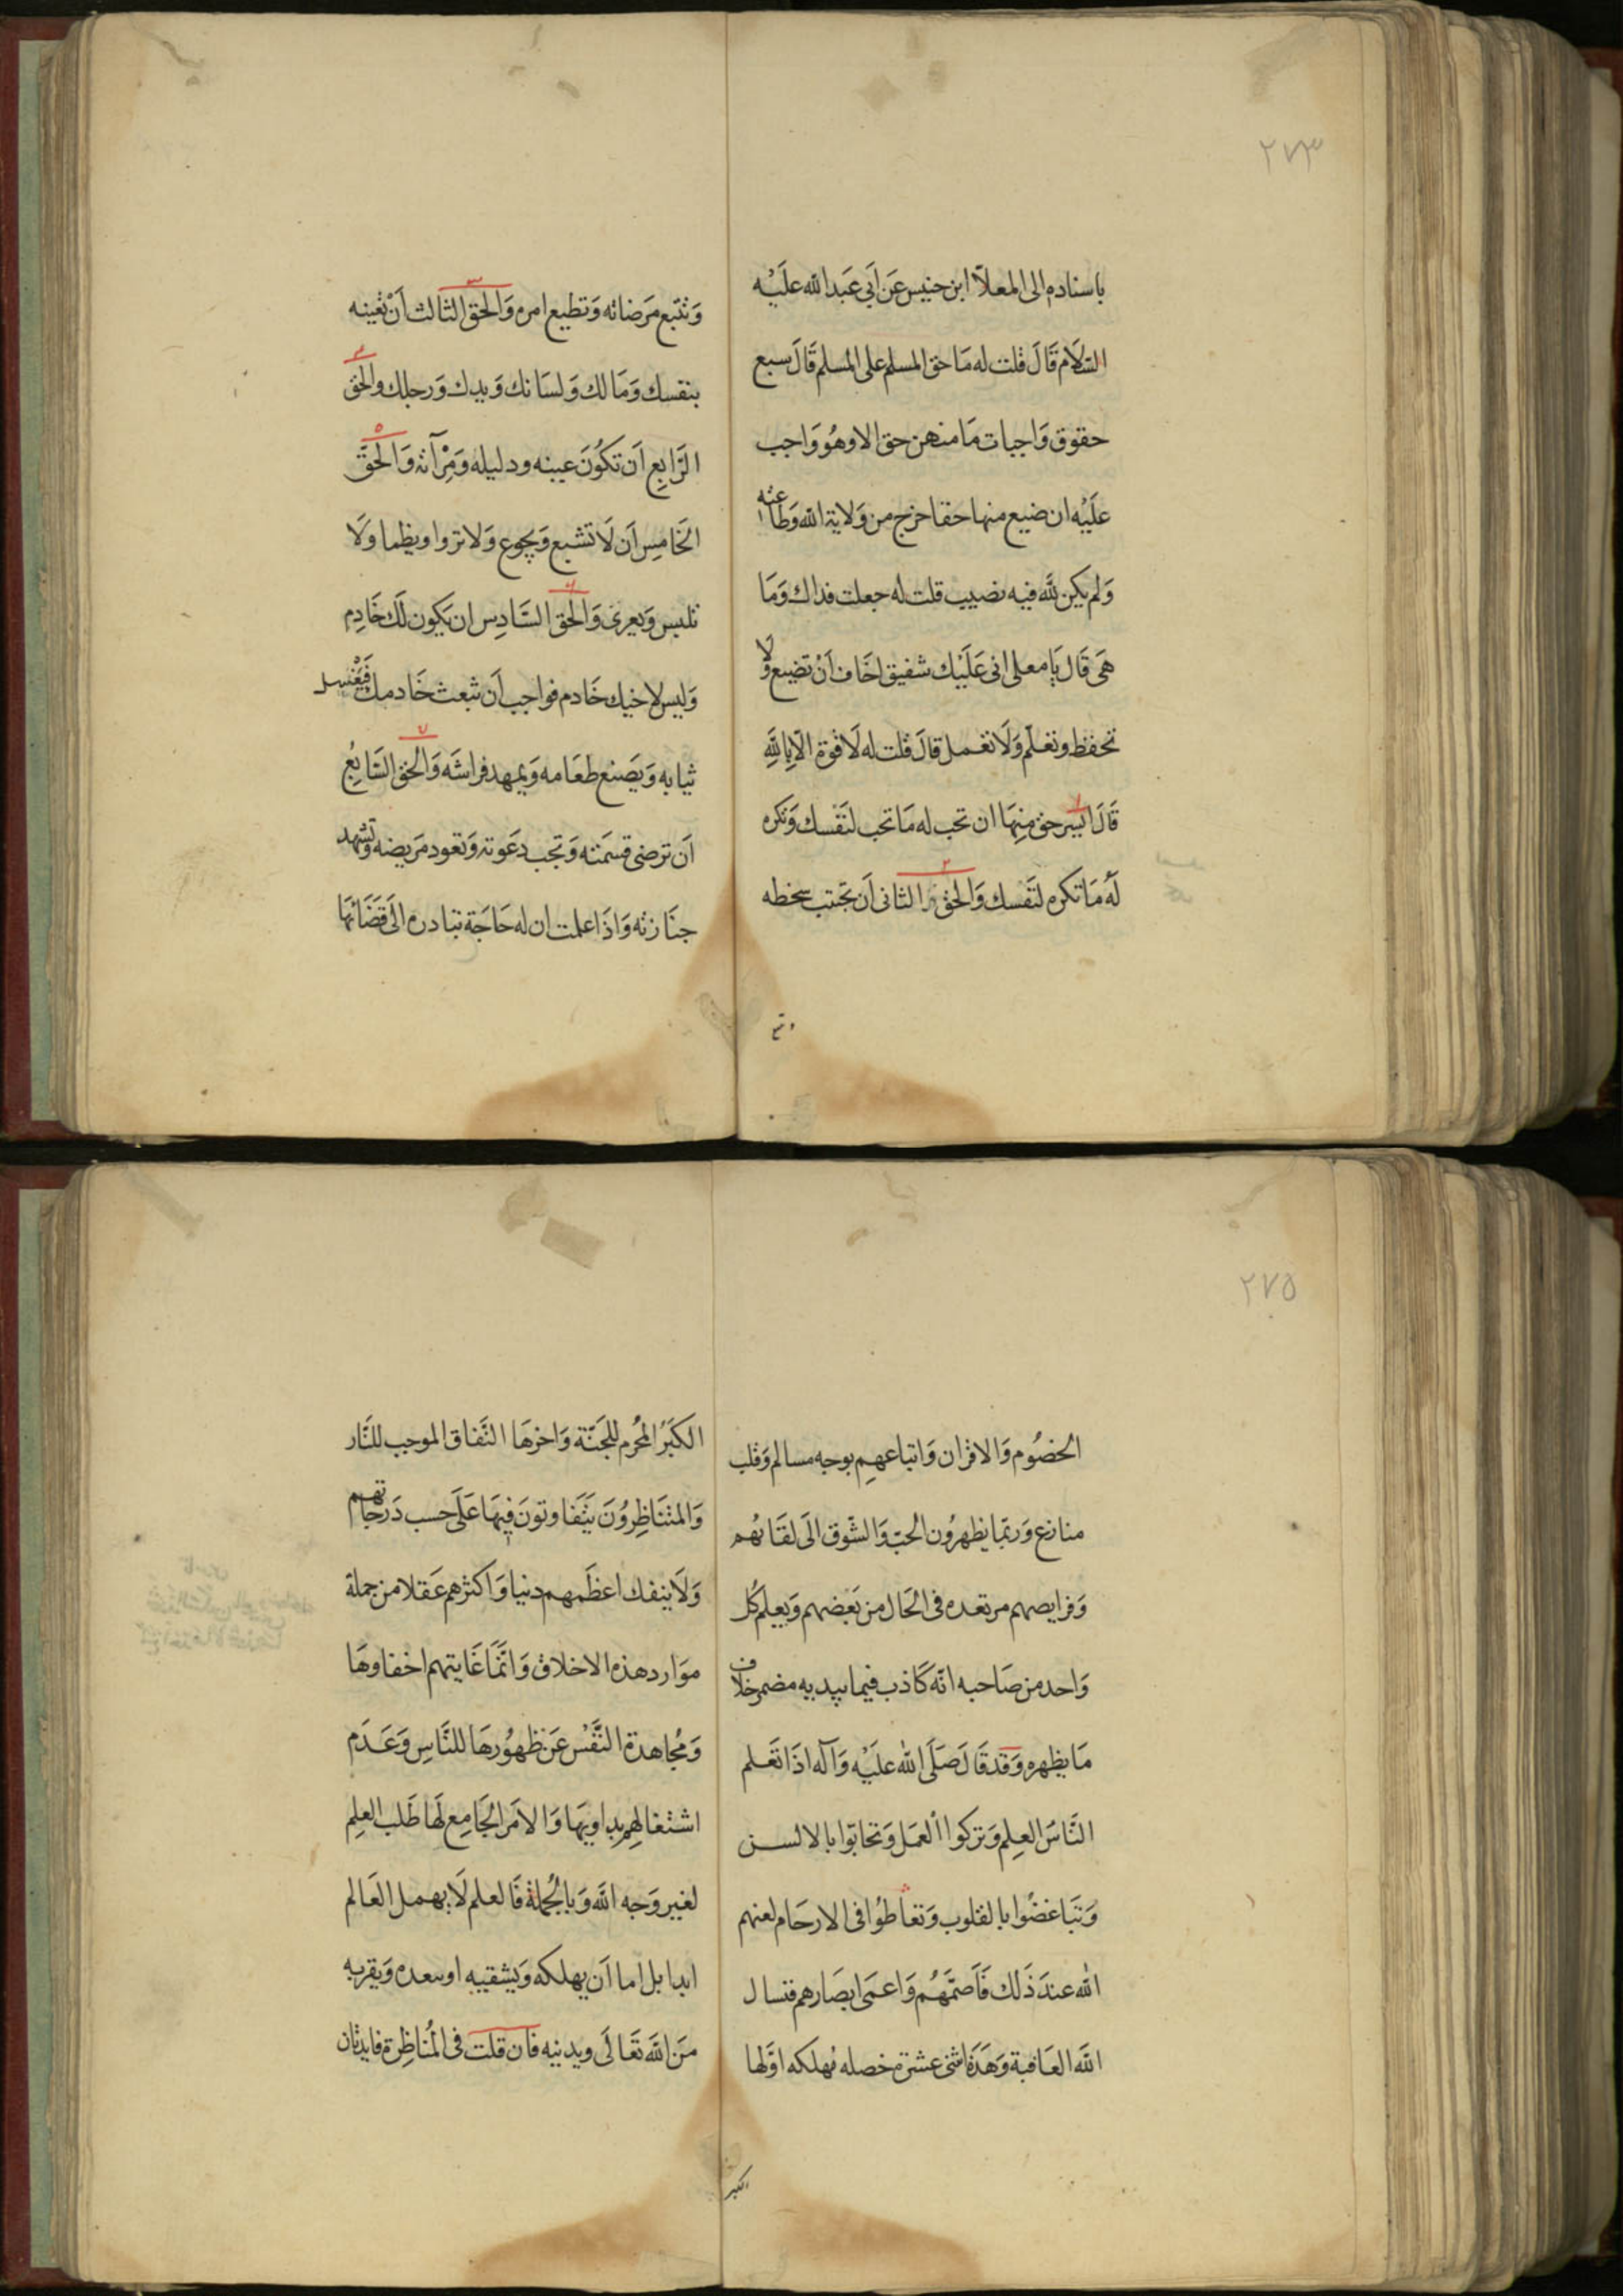 ٢٧٣
باسناده الى المعلّا ابن خنيس عَن اَبي عَبد الله علَيْه
السَّلَام قَالَ قلت له مَا حق المسلم على المسلم قَالَ سبع
حقوق وَاجبات مَا منهن حق الا وهُو وَاجب
علَيْه ان ضيع منها حقا خرج من وَلاية الله وَطاعته
وَلم يكن لله فيه نصيب قلت له جعلت فداك وَمَا
هَى قَال يَا معلى انى عَلَيْك شفيق اخَاف اَنْ تضيع وَلا
تحفظ وتعلّم وَلَا تعمل قالَ قلت له لَا قوة الّا بِاللهِ
قَالَ ايسر حق مِنهَا ان تحب له مَا تحب لنَفْسك وَتكره
لَهُ مَا تكره لنَفسك وَالحق الثانى اَن تَجتنب سخطه
وَتتبع مَرضاته وَتطيع امره وَالحق الثالث اَنْ تُعينه
بنفسك وَمَالك وَلسَانك وَيدك وَرجلك والحَق
الرَّابِع اَن تكُونَ عينه ودليله وَمِرْآته وَالحَقّ
الخَامِس اَن لَا تشبع وَيجوع وَلا تروا ويظما وَلَا
تلبس وَيعرىٰ وَالحق السَّادِس ان يَكون لَك خَادِم
وَليس لاخيك خَادم فواجب اَن تبعث خَادمك فَيَغْسِل
ثيابه وَيَصنع طعَامه وَيمهد فراشَه وَالحق السَّابِعُ
اَن ترضى قسمَته وَتجب دعَوته وَتعود مَريضه وَتشهد
جنَازته وَاذَا علمت ان له حَاجَة تبادره الَى قَضَائهَا
٢٧٥
الخصُوم وَالاقران وَاتباعهِم بوجه مسالم وَقلب
منازع وَربّما يظهرُون الحبّ وَالشّوق الَى لقَائهُم
وَفرايصهم مرتعده فى الحَال من بَعضهم وَيعلم كُل
وَاحد من صَاحبه انّه كَاذب فيما يبديه مضمر خلاف
مَا يظهره وَقد قَالَ صَلَّى الله علَيْه وَآله اذَا تَعَلم
النَّاسَ العِلم وَتركوا العمَل وَتحابّوا بالالسن
وَتَباغضُوا بالقلوب وَتقاطُوا فى الارحَام لعنهم
الله عندَ ذَلك فَاَصمَّهُم وَاعمَى ابصَارهم فنسال
الله العَافية وَهَذَة اثنى عشرَة خصله مُهلكه اوّلها
اكبر
الكَبَرُ المُحرم للجَنَّة وَاخرهَا النَّفاق الموجب للنَّار
وَالمتنَاظِرُونَ يتَفَاوتونَ فِيهَا عَلَى حسب دَرجَاتهم
وَلَا ينفك اعظَمهم دينا وَاكثرهم عَقلا من جملة
موَارد هذه الاخلاق وَانَّمَا غَايتهم اخفاوهَا
وَمُجاهدة النَّفْس عَن ظهُورهَا للنَّاسِ وَعَدَم
اشتغالهِم بِداويهَا وَالامَر الجَامع لهَا طَلب العِلِم
لغير وَجه الله وَبالجُملة فَالعلم لَا يهمل العَالم
ابدا بل اما اَن يهلكه وَيشقيه او يسعده وَيقربه
منَ اللهَ تَعَالَى ويدنيه فان قلت فى المُناظِرة فايدتان